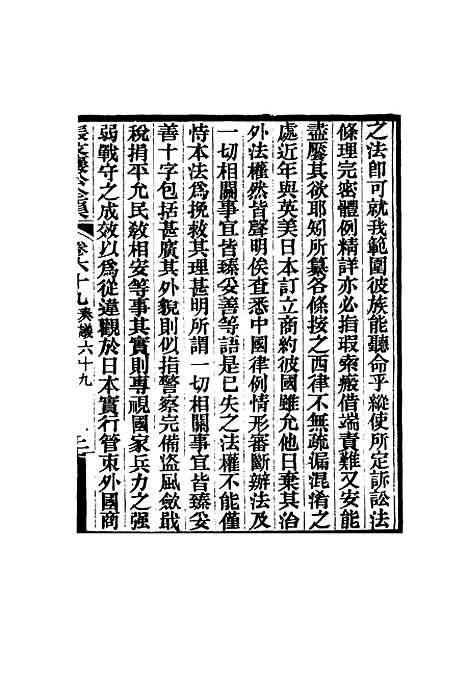 之法卽可就我範圍彼族能聽命乎縱使所定訴訟法
條理完密體例精詳亦必指瑕索瘢借端責難又安能
盡饜其欲耶知所纂各條按之西律不無疏漏混淆之
處近年與英美日本訂立商約彼國雖允他日棄其治
外法權然皆聲明俟查悉中國律例情形審斷辦法及
一切相關事宜皆臻妥善等語是已失之法權不能僅
恃本法爲挽救其理甚明所謂一切相關事宜皆臻妥
善十字包括甚廣其外貌則似指警察完備盜風斂戢
稅捐平允民敎相安等事其實則專視國家兵力之强
弱戰守之成效以爲從違觀於日本實行管束外國商
卷六十九 奏議六十九